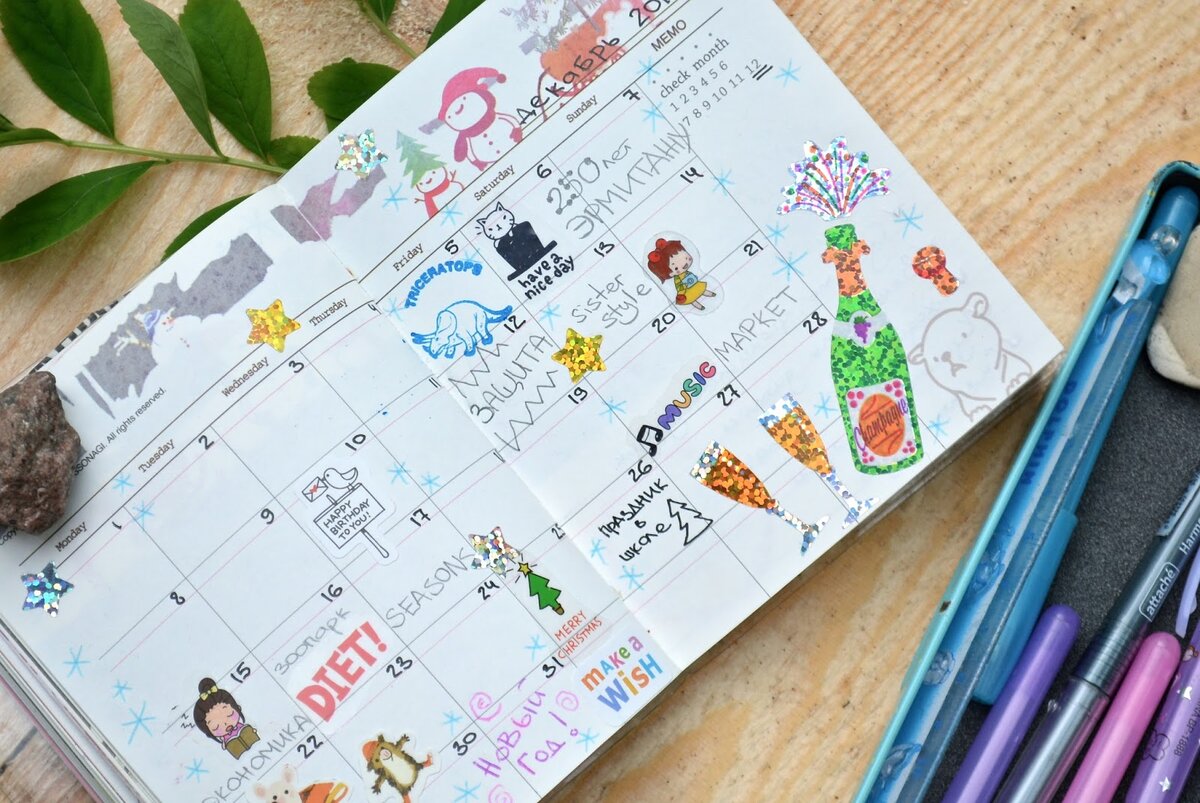 Декабрь 201
MEMO
check month
1 2 3 4 5 6
7 8 9 10 11 12
Monday
Tuesday
Wednesday
Thursday
Friday
Saturday
Sunday
SSONAGI. All rights reserved.
1
2
3
5
TRICERATOPS
6
have a
nice day
7
250 лет
ЭРМИТАЖУ
8
9
10
HAPPY
BIRTHDAY
TO YOU!
12
ЗАЩИТА
13
sister
style
14
15
ЭКОНОМИКА
16
зоопарк
DIET!
17
SEASONS
19
20
MUSIC
21
МАРКЕТ
22
23
24
MERRY
CHRISTMAS
26
ПРАЗДНИК
в
школе
27
28
Champagne
30
31
Новый
Год!
make a
WiSH
attaché